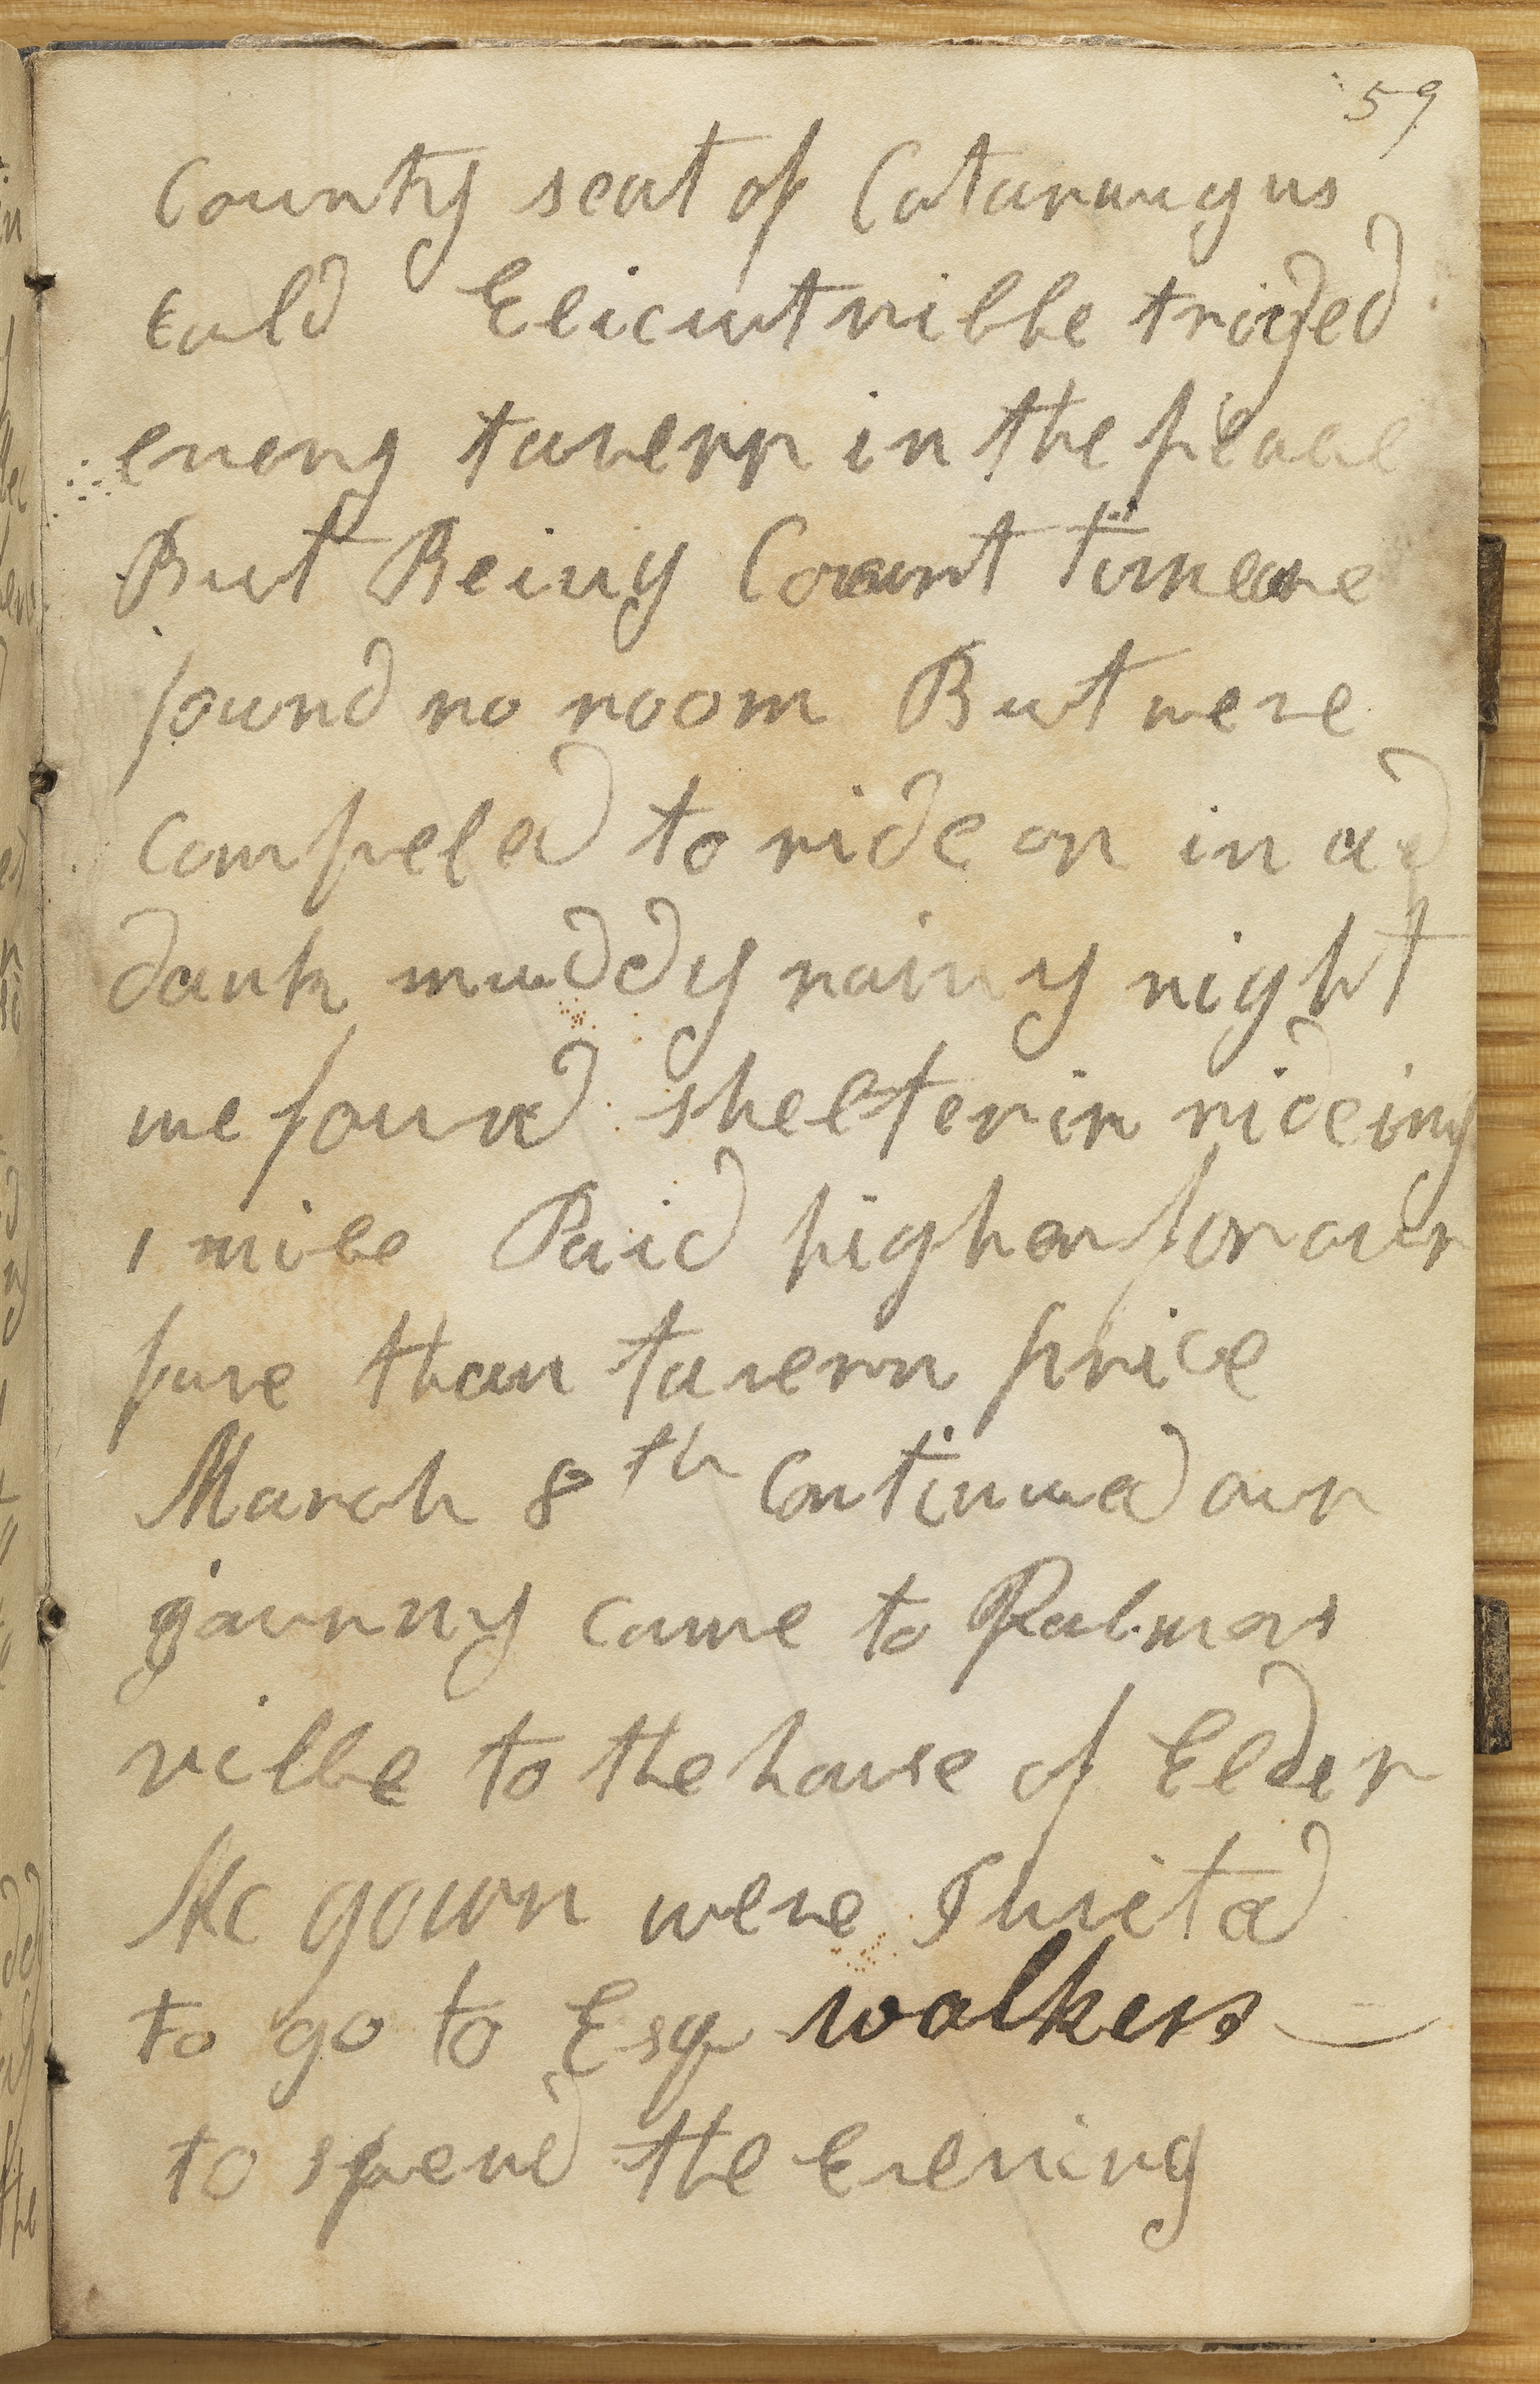 59
County seat of Cataraugus
cald Elicutville tryed
every tavern in the place
But Being Court time we
found no room But were
compeled to ride on in a
dark muddy rainy night
we found shelter in rideing
1 mile Paid higher for our
fare than tavern price
March 8th Continued our
journy came to Palmers
ville to the house of Elder
Mc gown were Invited
to go to Esq walkers
to spend the Evening